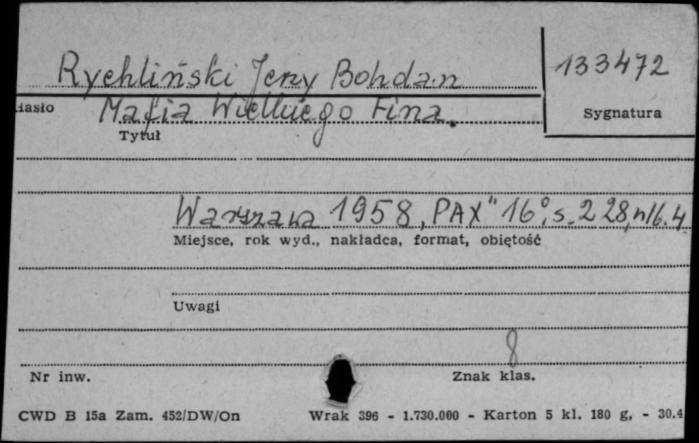 Rychliński Jerzy Bohdan
133472
iasło
Mafia Wielkiego Fina.
Sygnatura
Tytuł
Warszawa 1958, "PAX" 16°, s. 228, nlb. 4
Miejsce, rok wyd., nakładca, format, objętość
Uwagi
8
Nr inw.
Znak klas.
CWD B 15a Zam. 452/DW/On
Wrak 396 - 1.730.000 - Karton 5 kl. 180 g. - 30.4